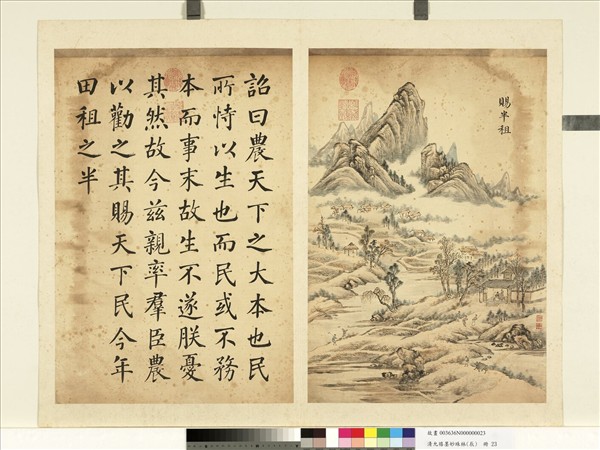 賜半租
詔曰農天下之大本也民
所恃以生也而民或不務
本而事末故生不遂朕憂
其然故今茲親率羣臣農
以勸之其賜天下民今年
田租之半
故畫 003636N000000023
漢九張墨妙珠林(辰) 冊 23